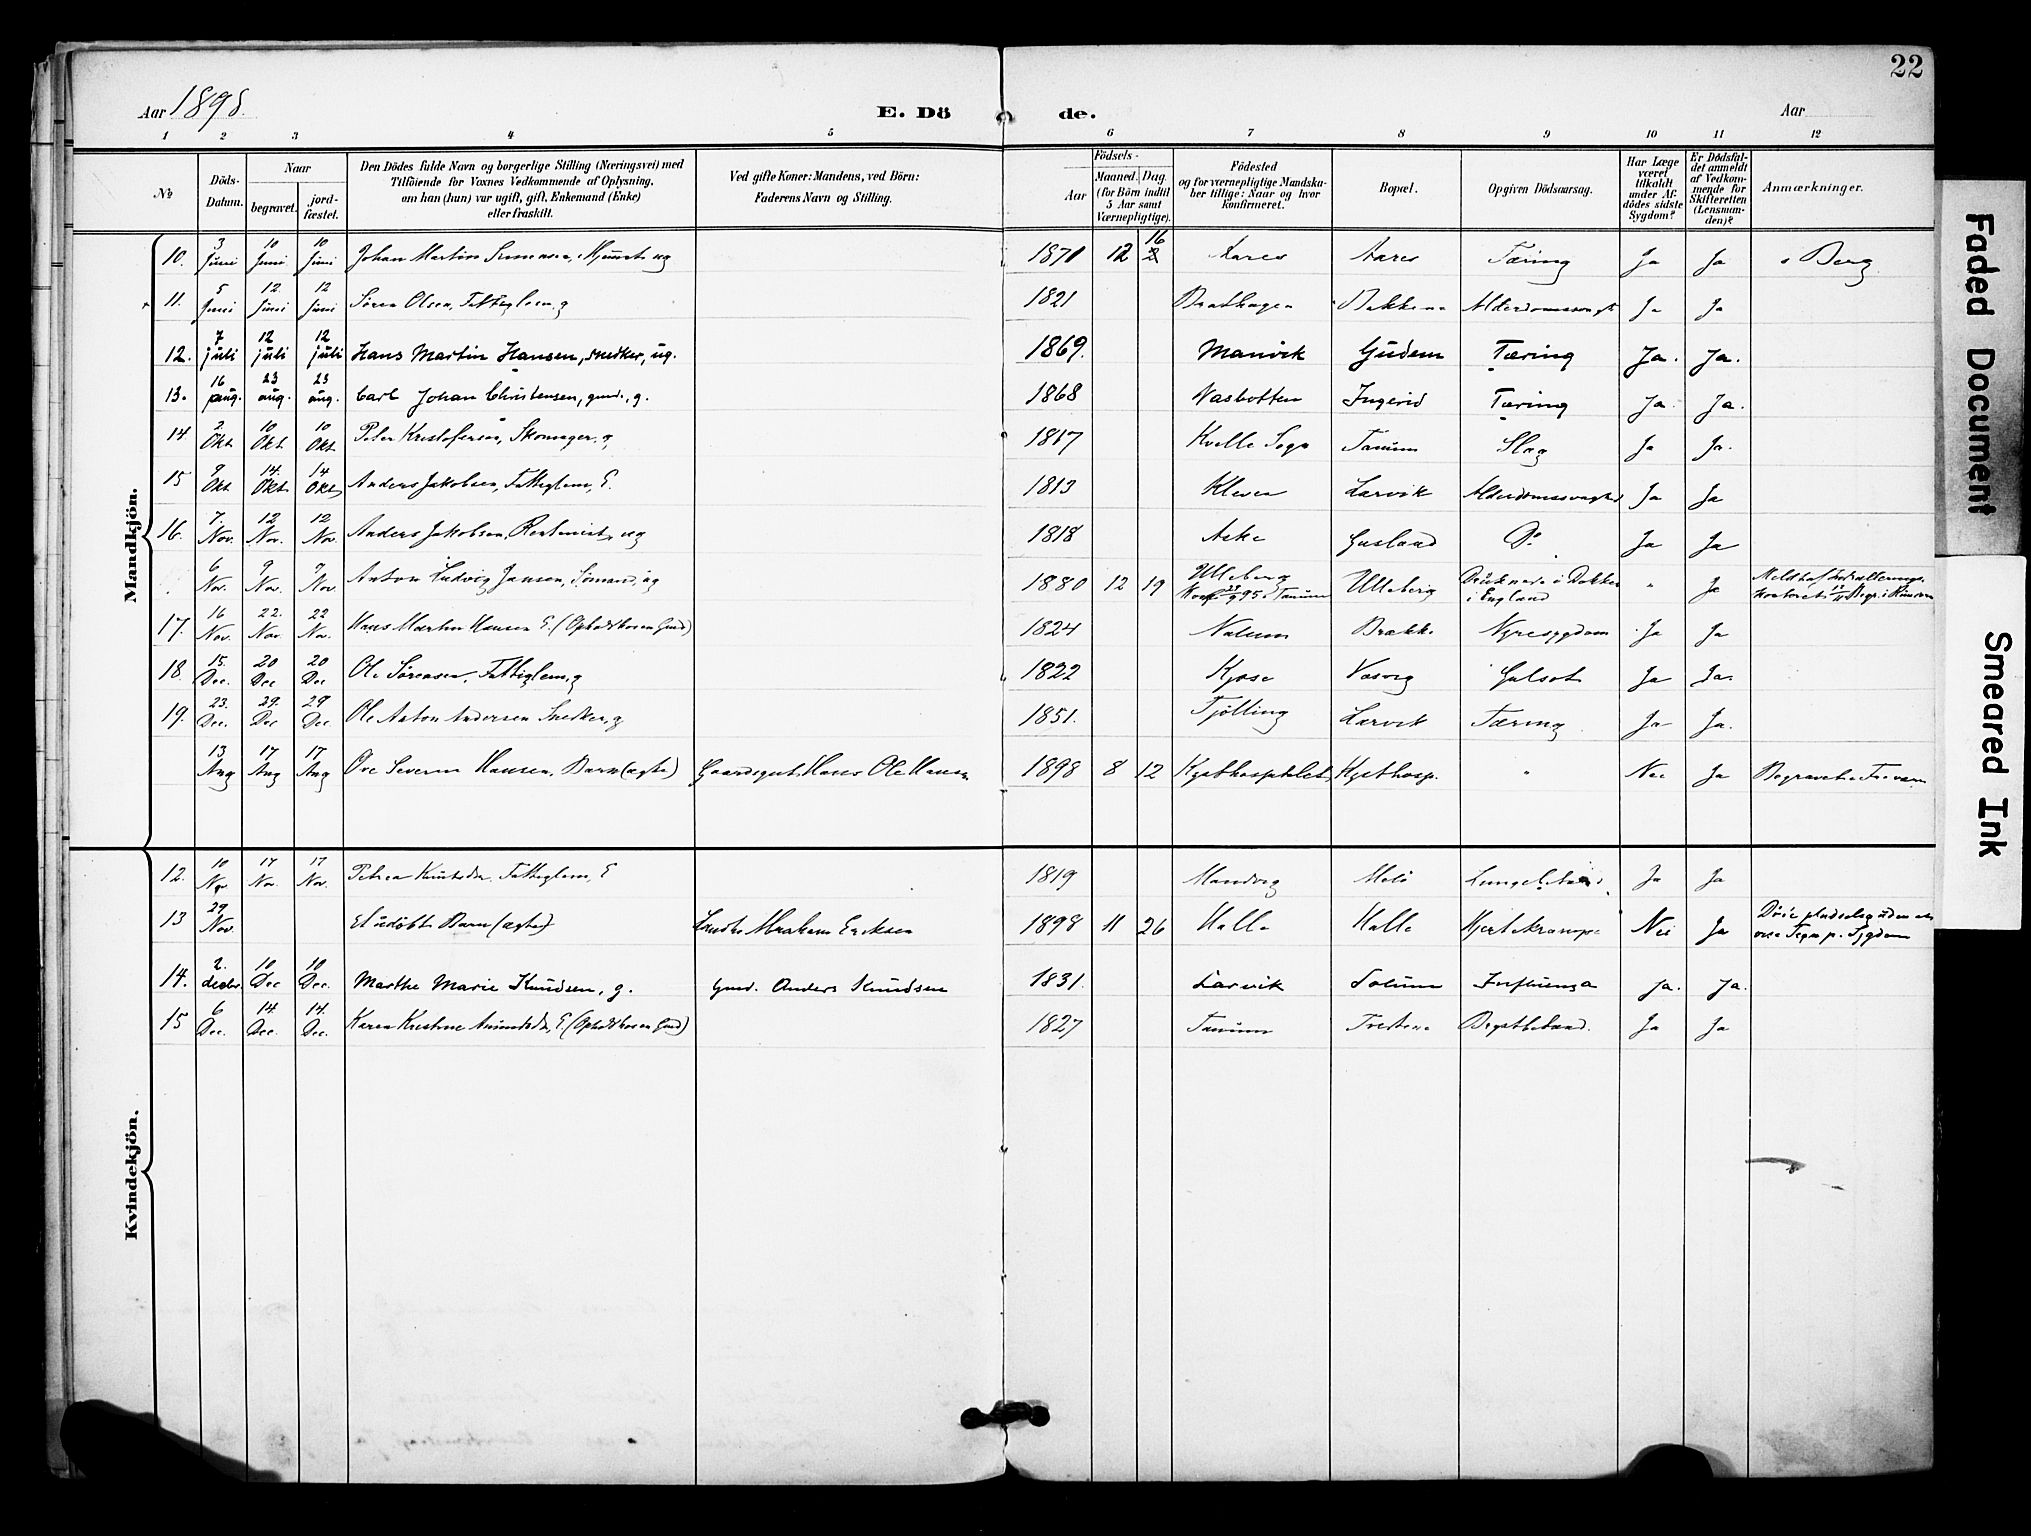 22
Aar 1898. E. Dö de. Aar
1 2 3 4 5 6 7 8 9 10 11 12
No Döds-Datum. Naar begravet. jordfæstet. Den Dödes fulde Navn og borgerlige Stilling (Næringsvei) med Tilföiende for Voxnes Vedkommende af Oplysning, om han (hun) var ugift, gift, Enkemand (Enke) eller fraskilt. Ved gifte Koner: Mandens, ved Börn: Faderens Navn og Stilling. Födsels- Aar Maaned. Dag. (for Börn indtil 5 Aar samt Værnepligtige). Födested og for værnepligtige Mandskaber tillige: Naar og hvor konfirmeret. Bopæl. Opgiven Dödsaarsag. Har Læge været tilkaldt under Afdödes sidste Sygdom? Er Dödsfaldet anmeldt af Vedkommende for Skifteretten (Lensmanden)? Anmærkninger.
Mandkjön.
10. 3 Juni 10 Juni 10 Juni Johan Martin ug 1871 12 16 Aares Aares Tæring Ja Ja Berg
11. 5 Juni 12 Juni 12 Juni Søren Olsen, Fattiglem, g 1821 Bakkene Alderdomssvagh Ja Ja
12. 7 juli 12 juli 12 juli Hans Martin Hansen, snedker, ug. 1869. Manvik Gudem Tæring Ja. Ja.
13. 16 aug. 23 aug. 23 aug. Carl Johan Christensen, gmd., g. 1868 Vasbotten Ingerid Tæring Ja. Ja.
14 2. Okt 10 Okt 10 Okt Peter Kristofersen, Skomager, g, 1817 Kvelle Sogn Tanum Slag Ja Ja.
15 9 Okt 14. Okt 14 Okt Anders Jakobsen, Fattiglem, E. 1813 Kleven Larvik Alderdomssvaghed Ja Ja
16. 7. Nov. 12 Nov. 12 Nov. Anders Jakobsen, ug 1818 Aske Gusland Do Ja Ja
6 Nov. 9 Nov. 9 Nov. Anton Ludvig Jansen, Sømand, ug 1880 12 19 Ulleberg Konf. 29/9 95 i Tanum Ulleberg Druknede i Dokken i England " Ja
17. 16 Nov. 22. Nov. 22 Nov. Hans Martin Hansen E. (Opholdt hos en Gmd) 1824 Nalum Brække Nyresygdom Ja Ja
18. 15. Dec. 20 Dec 20 Dec Ole Sørensen, Fattiglem, g 1822 Kjose Vasvig Gulsot Ja Ja.
19. 23. Dec. 29. Dec 29 Dec. Ole Anton Andersen Snedker, g 1851. Tjølling Larvik Tæring Ja Ja.
13 Aug 17 Aug 17 Aug Ove Severin Hansen, Barn (ægte) Gaardsgut Hans Ole Hansen 1898 8 12 Kysthospitalet Kysthosp. " Nei Ja Begravet i
Kvindekjön.
12. 10 Nov 17 Nov. 17 Nov. Petrea Knutsdr. Fattiglem, E 1819 Manvig Melø Ja Ja
13 29 Nov. Et udøbt Barn (ægte) Abraham Eriksen 1898 11 26 Halle Halle Hjertekrampe Nei Ja Døde pludselig uden at vise Tegn p. Sygdom
14. 2. decbr. 10 Dec 10 Dec. Marthe Marie Knudsen, g. gmd. Anders Knudsen 1831. Larvik Solum Influenza Ja. Ja.
15 6 Dec. 14 Dec. 14. Dec. Karen Kristine E. (Opholdt hos en Gmd) 1827 Tanum Brystbetænd. Ja Ja
Faded Document
Smeared Ink